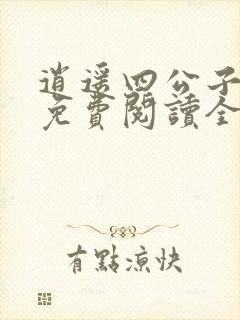 逍遥四公子
免費閱讀全
有點涼快